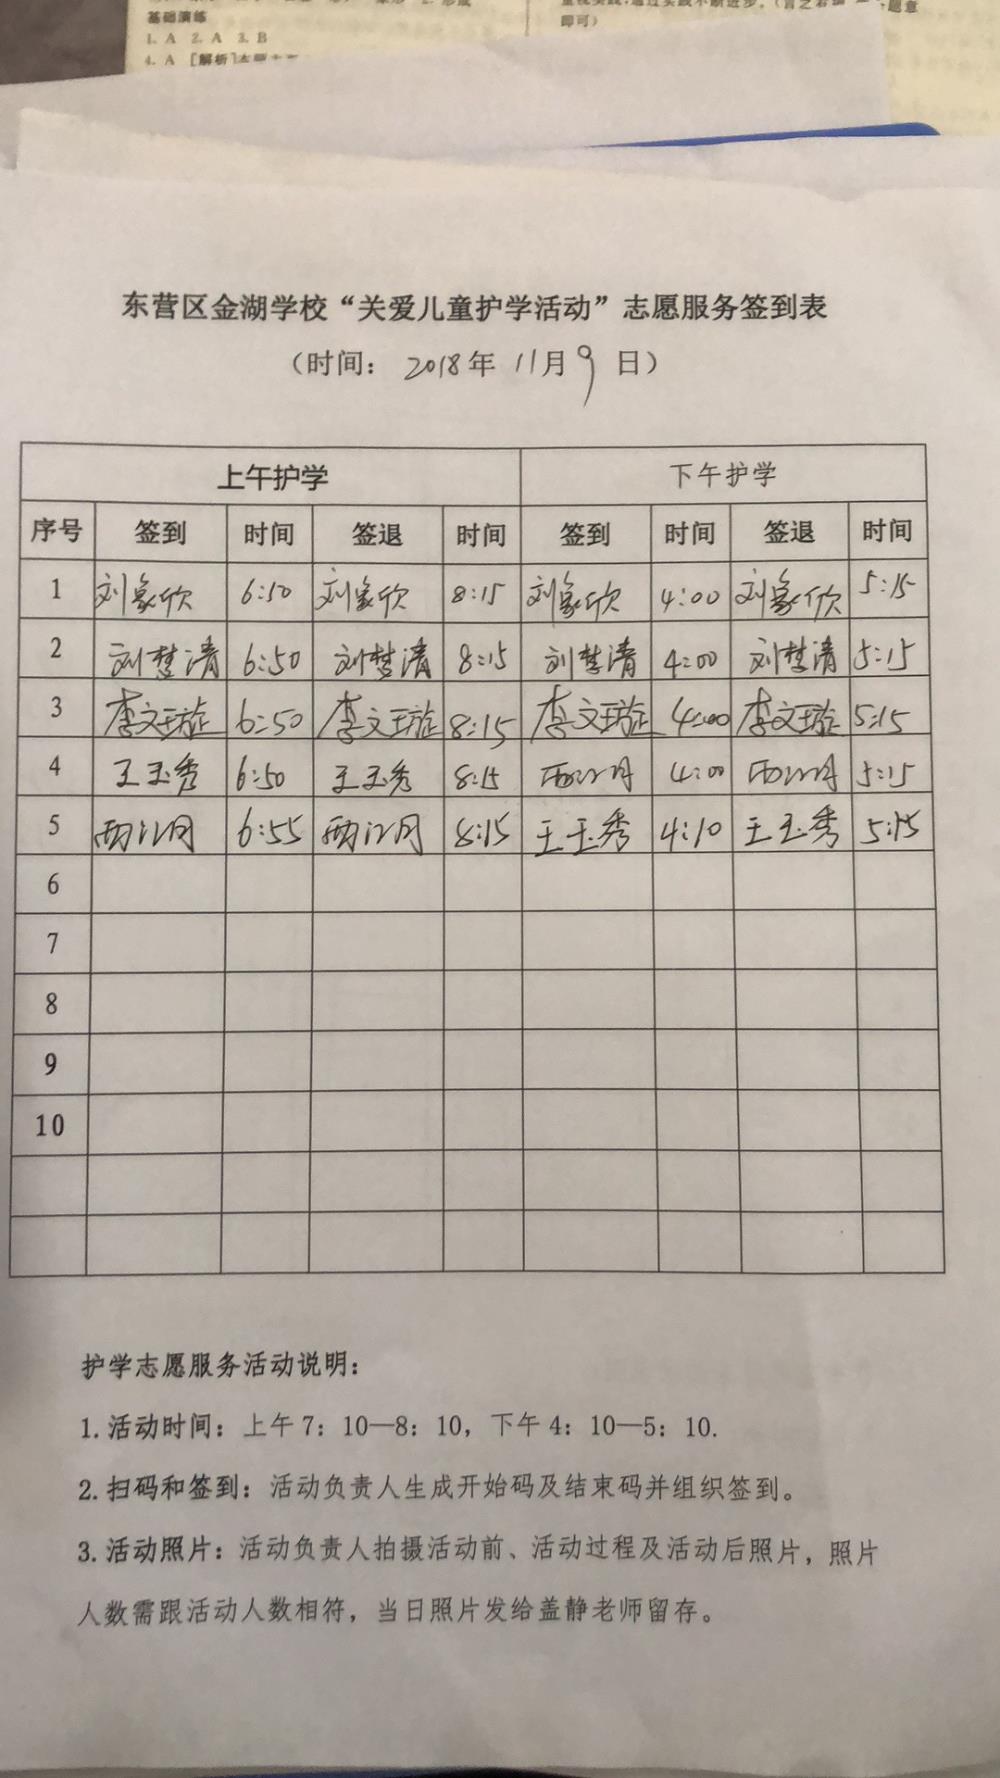 基础演练
1. A 2. A 3. B
4. A [解析]
即可)
东营区金湖学校“关爱儿童护学活动”志愿服务签到表
(时间: 2018年 11月 9 日)
上午护学 下午护学
序号 签到 时间 签退 时间 签到 时间 签退 时间
1 刘家欣 6:50 刘家欣 8:15 刘家欣 4:00 刘家欣 5:15
2 刘梦清 6:50 刘梦清 8:15 刘梦清 4:00 刘梦清 5:15
3 李文璇 6:50 李文璇 8:15 李文璇 4:00 李文璇 5:15
4 王玉秀 6:50 王玉秀 8:15 4:00 5:15
5 6:55 8:15 王玉秀 4:10 王玉秀 5:15
6
7
8
9
10
护学志愿服务活动说明:
1. 活动时间: 上午 7: 10—8: 10, 下午 4: 10—5: 10.
2. 扫码和签到: 活动负责人生成开始码及结束码并组织签到。
3. 活动照片: 活动负责人拍摄活动前、活动过程及活动后照片, 照片
人数需跟活动人数相符, 当日照片发给盖静老师留存。